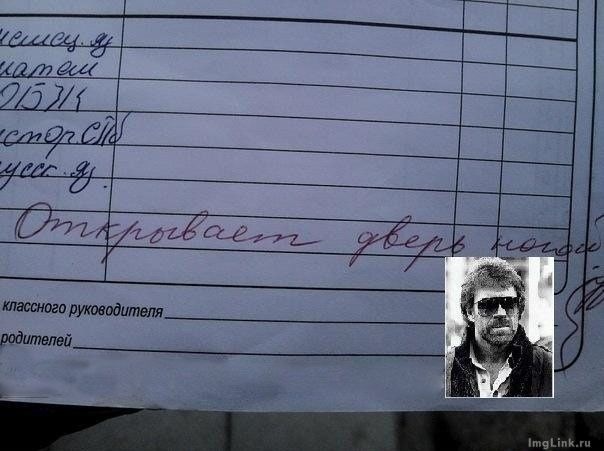 немец. яз
матем
ОБЖ
истор СПб
русск. яз.
Открывает дверь ногой
классного руководителя
родителей
ImgLink.ru